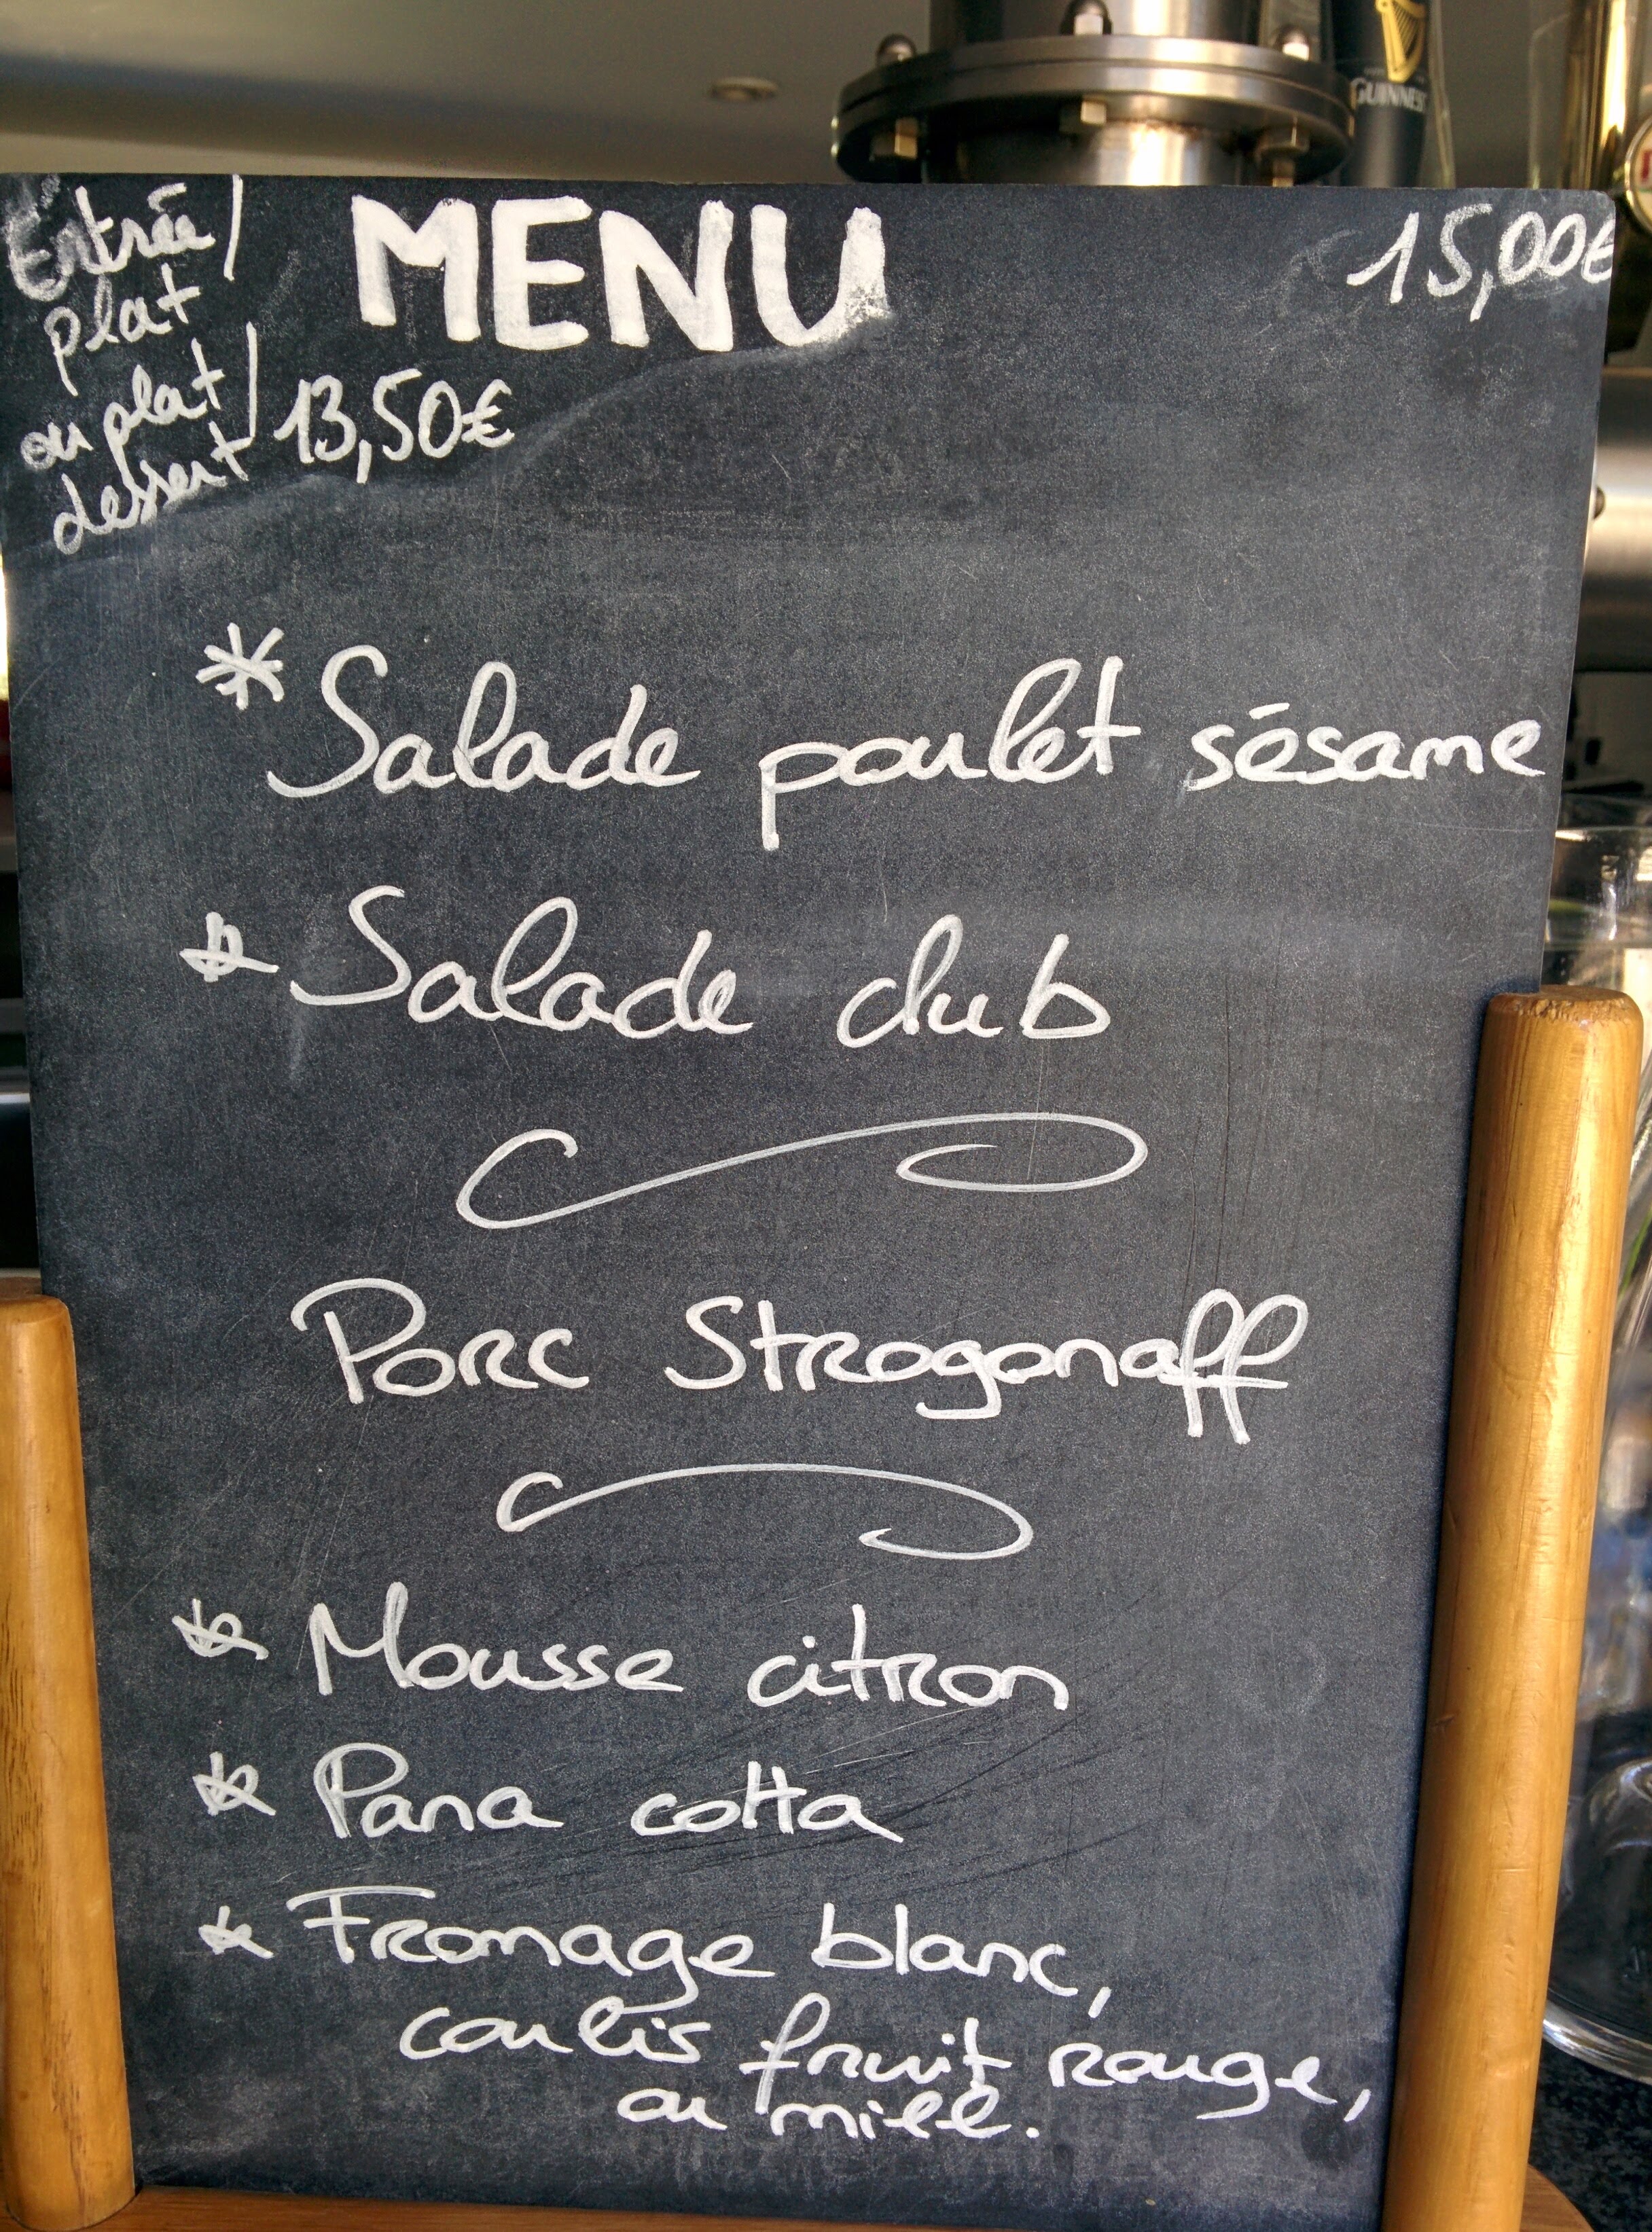 GUINNESS
Entrée/
plat
ou plat/
dessert
13,50€
MENU
15,00€
* Salade poulet sésame
* Salade club
Porc Strogonoff
* Mousse citron
* Pana cotta
* Fromage blanc,
coulis fruit rouge,
ou miell.